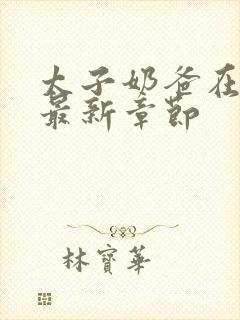 太子奶爸在
最新章節
林寶華